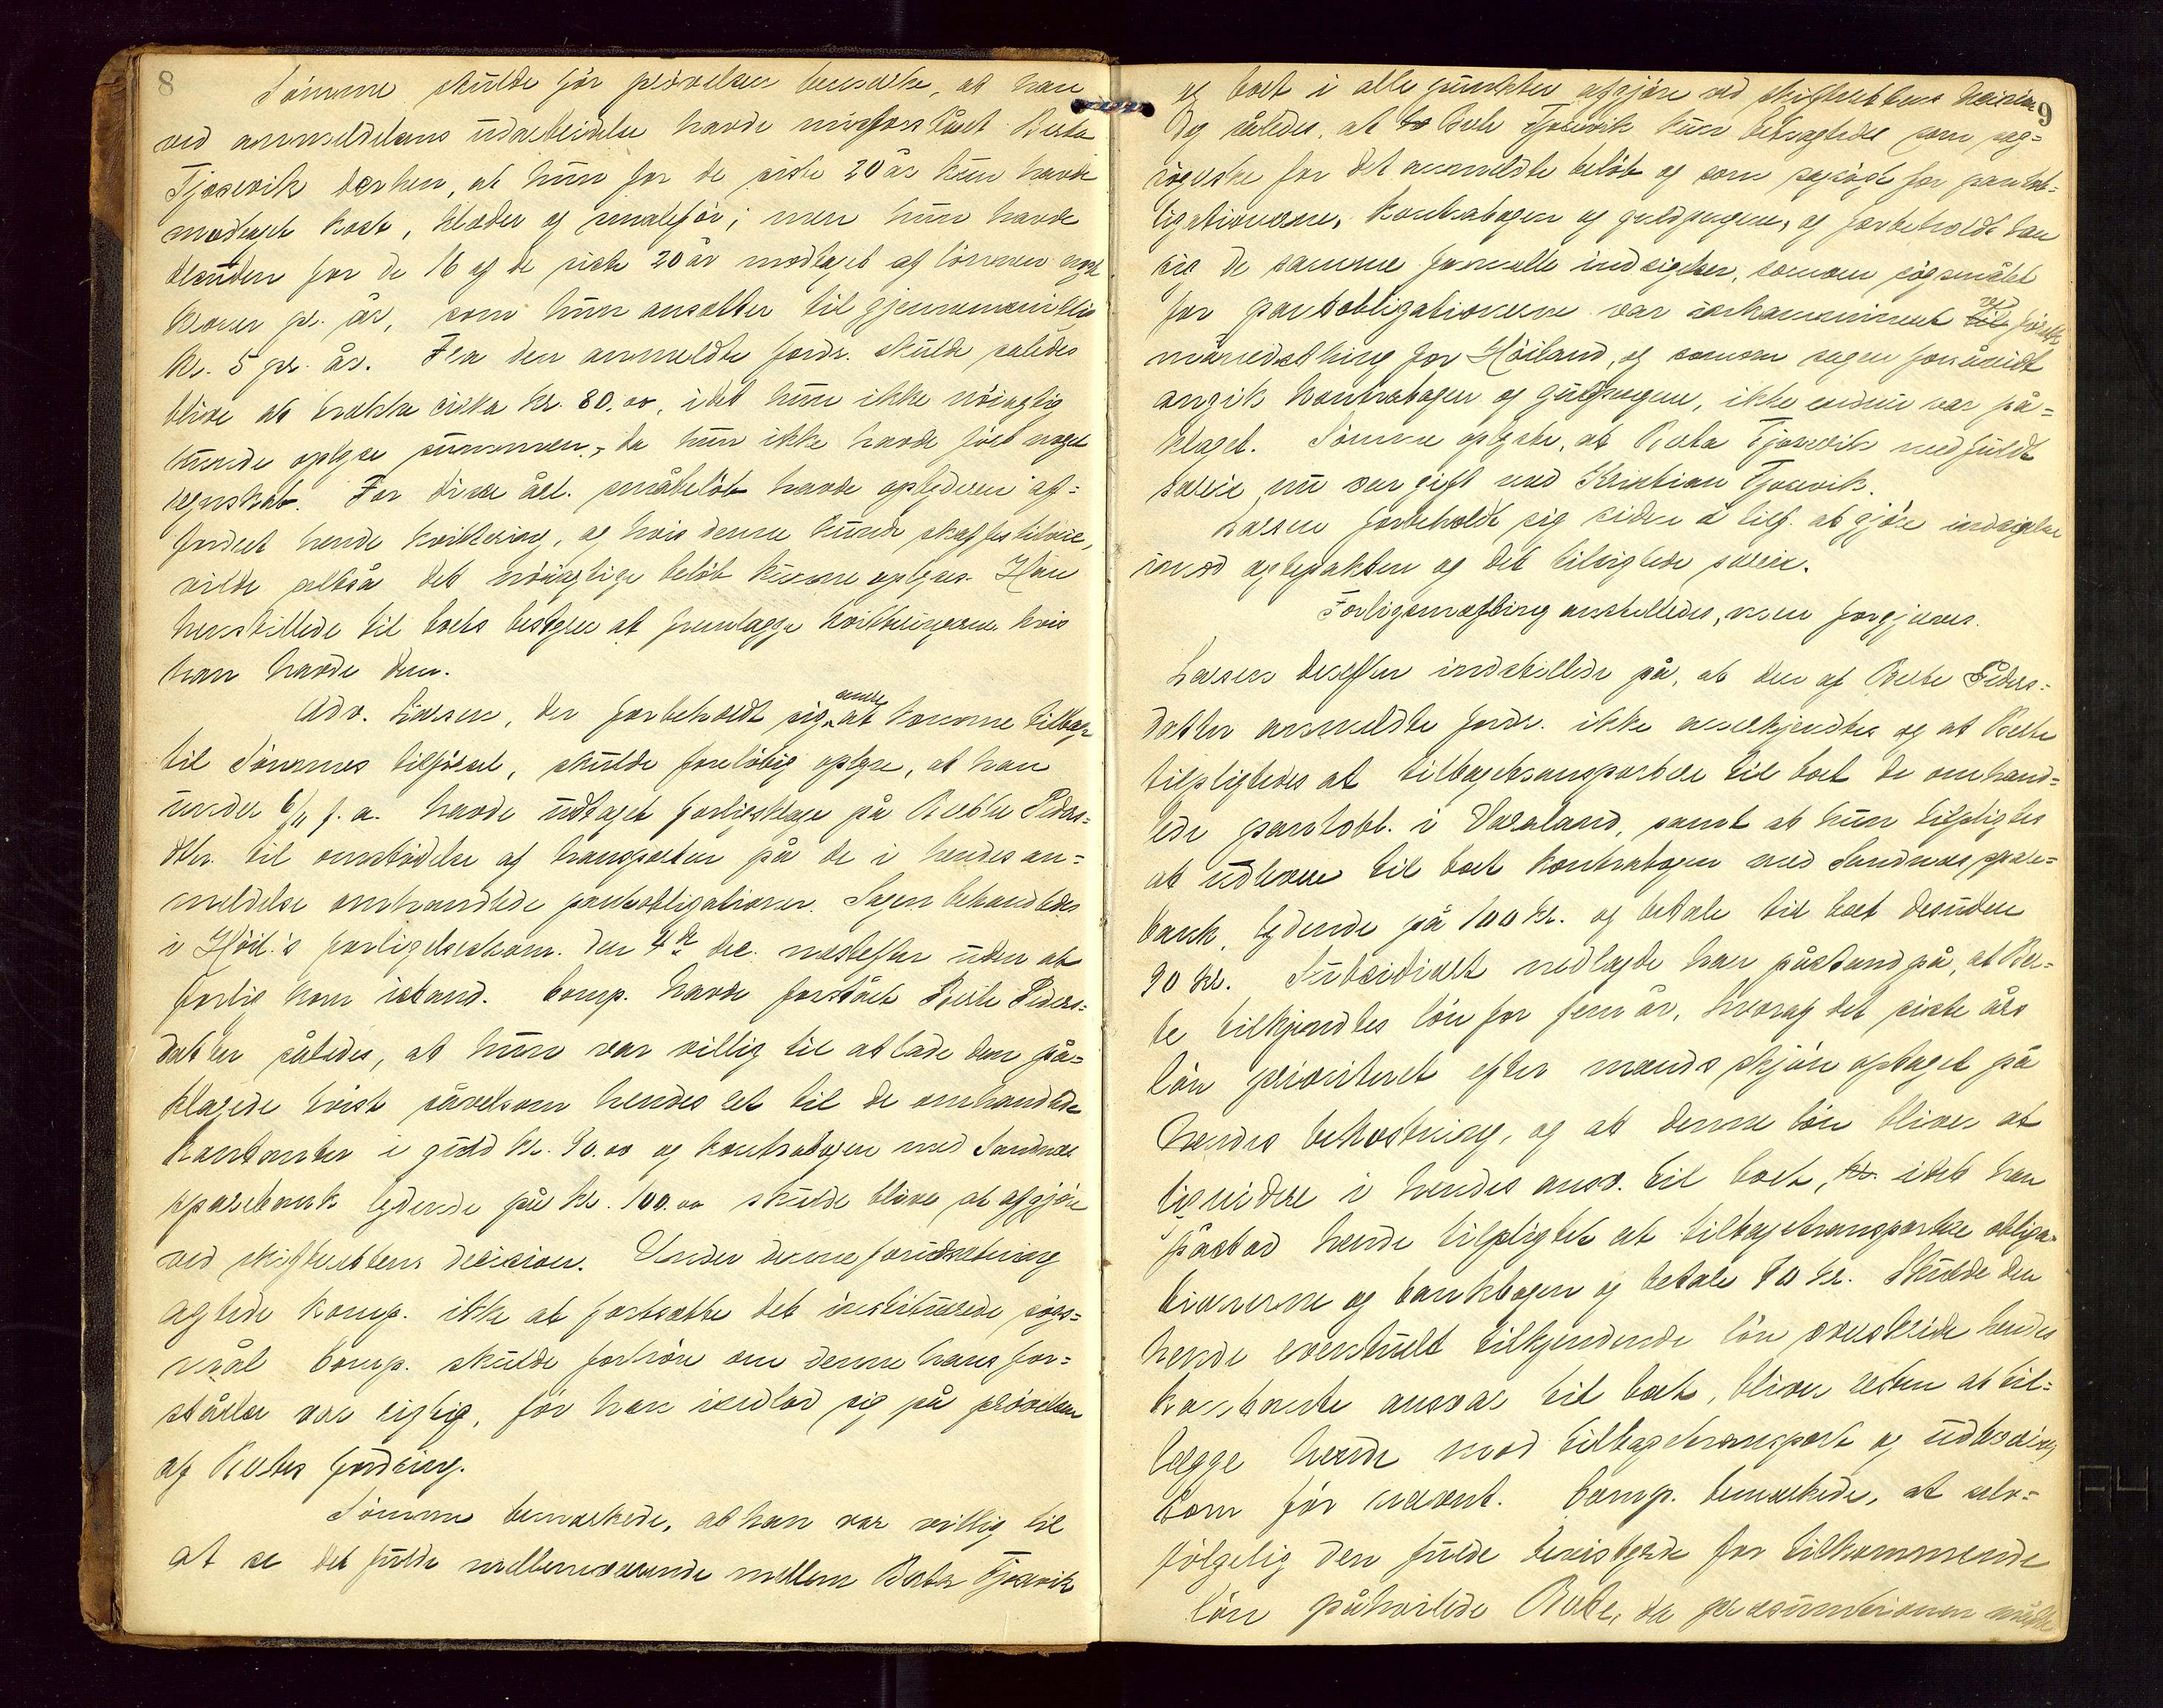 8
Sömme skulde för prövelsen bemærke, at han
ved anmeldelsens udarbeidelse havde misforstået Berte
Tjosevik derhen, at hun for de siste 20 år kun havde
modtaget kost, klæder og smalefôr; men hun havde
desuden for de 16 af de siste 20 år modtaget af lönnen nogle
kroner pr. år, som hun ansætter til gjennemsnitlig
kr. 5 pr. år. Fra den anmeldte fordr. skulde således
blive at trække cirka kr. 80.00, idet hun ikke nöiagtig
kunde oplyse summen, da hun ikke havde fört noget
regnskab. For disse årl. småbelöb havde oplyderen af-
fordret hende kvittering, og hvis denne kunde skaffes tilveie,
vilde altså det nöiagtige belöb kunne oplyses. Han
henstillede til boets bestyrer at fremlægge kvitteringerne hvis
han havde dem.
Adv. Larsen, der forbeholdt sig at komme tilbage
til Sömmes tilförsel, skulde foreløbig oplyse, at han
under 6/11 f. a. havde udtaget forligsklage på Berthe Peders-
dtr. til omstödelse af transporten på de i hendes an-
meldelse omhandlede pantobligationer. Sagen behandledes
i Höil.'s forligelseskom. den 4de dec. næstefter uden at
forlig kom istand. Comp. havde forstået Berte Peders-
datter således, at hun var villig til at lade den på-
klagede tvist såvelsom hendes ret til de omhandlede
kontanter i guld kr. 90.00 og kontrabogen med Sandnæs
sparebank lydende på kr. 100.00 skulde blive at afgjöre
ved skifterettens decision. Under denne forudsætning
agtede komp. ikke at fortsætte det instituerede sögs-
mål. Comp. skulde forhöre om denne hans for-
ståelse var rigtig, för han indlod sig på prövelsen
af Bertes fordring.
Sömme bemærkede, at han var villig til
at se det fulde mellemværende mellem Berte Tjosevik
9
og boet i alle punkter afgjöre ved skifterettens decision
Dog således, at Berte Tjosevik kun betragtedes som sag-
sögerske for det anmeldte belöb og som sagsögt for pantob-
ligationerne, kontrabogen og guldpengene, og forbeholdt han
sig de samme formelle indsigelser, somom sögsmålet
for pantobligationerne var inkammineret ved förste
månedsthing for Höiland, og somom sagen forsåvidt
angik kontrabogen og guldpengene, ikke endnu var på-
klaget. Sömme oplyste, at Berta Tjosevik med fuldt
særeie nu var gift med Kristian Tjosevik.
Larsen forbeholdt sig siden å tilf. at gjöre indsigelse
imod ægtepakten og det tilsigtede særeie.
Forligsmægling anstilledes, men forgjæves.
Larsen derefter indstillede på, at den af Berte Peders-
datter anmeldte fordr. ikke anerkjendtes og at Berte
tilpligtedes at tilbagetransportere til boet de omhand-
lede pantobl. i Varaland, samt at hun tilpligtes
at udlevere til boet kontrabogen med Sandnæs spare-
bank, lydende på 100 kr. og betale til boet desuden
90 kr. Subsidiært nedlagde han påstand på, at Ber-
te tilkjendtes lön for fem år, hvoraf det siste års
lön prioriteret efter mænds skjön optaget på
hendes bekostning, og at denne lön bliver at
liquidere i hendes ansv. til boet, idet han
påstod hende tilpligtet at tilbagetransportere obliga-
tionerne og bankbogen og betale 90 kr. Skulde den
hende eventuelt tilkjendende lön overskride hendes
kontante ansvar til boet, bliver resten at til-
lægge hende mod tilbagetransport og udbetaling
som för nævnt. Comp. bemærkede, at selv-
fölgelig den fulde bevisbyrde for tilkommende
lön påhvilede Berte, da præsumtionen måtte